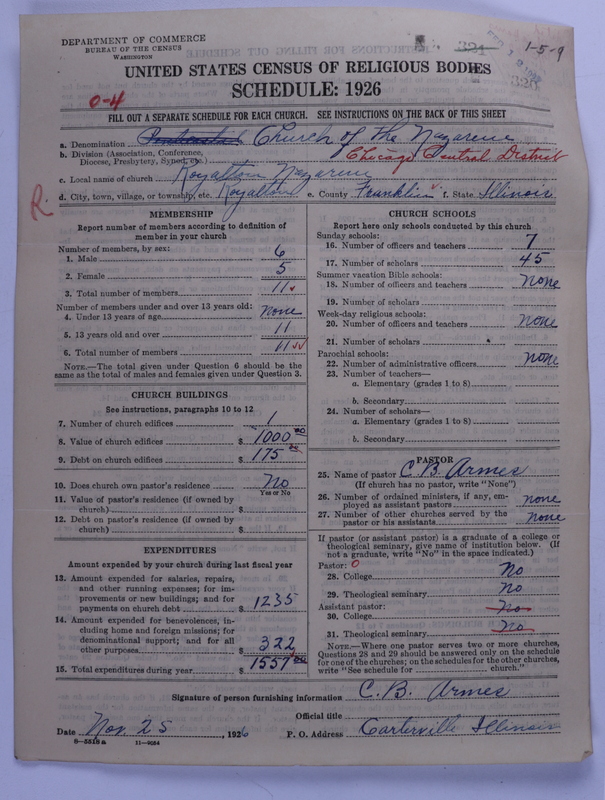 DEPARTMENT OF COMMERCE
BUREAU OF THE CENSUS
WASHINGTON
321
1-5-9
320
UNITED STATES CENSUS OF RELIGIOUS BODIES
SCHEDULE: 1926
0-4
FILL OUT A SEPARATE SCHEDULE FOR EACH CHURCH. SEE INSTRUCTIONS ON THE BACK OF THIS SHEET
a. Denomination Pentecostal Church of the Nazarene
b. Division (Association, Conference, Diocese, Presbytery, Synod, etc.) Chicago Central District
c. Local name of church Royalton Nazarene
d. City, town, village, or township, etc. Royalton e. County Franklin f. State Illinois
R.
MEMBERSHIP
Report number of members according to definition of member in your church
Number of members, by sex:
1. Male 6
2. Female 5
3. Total number of members 11
Number of members under and over 13 years old:
4. Under 13 years of age none
5. 13 years old and over 11
6. Total number of members 11
NOTE.—The total given under Question 6 should be the same as the total of males and females given under Question 3.
CHURCH BUILDINGS
See instructions, paragraphs 10 to 12
7. Number of church edifices 1
8. Value of church edifices $ 1000 00
9. Debt on church edifices $ 175 00
10. Does church own pastor's residence No
Yes or No
11. Value of pastor's residence (if owned by church) $
12. Debt on pastor's residence (if owned by church) $
EXPENDITURES
Amount expended by your church during last fiscal year
13. Amount expended for salaries, repairs, and other running expenses; for improvements or new buildings; and for payments on church debt $ 1235
14. Amount expended for benevolences, including home and foreign missions; for denominational support; and for all other purposes $ 322
15. Total expenditures during year $ 1557 00
CHURCH SCHOOLS
Report here only schools conducted by this church
Sunday schools:
16. Number of officers and teachers 7
17. Number of scholars 45
Summer vacation Bible schools:
18. Number of officers and teachers none
19. Number of scholars
Week-day religious schools:
20. Number of officers and teachers none
21. Number of scholars
Parochial schools:
22. Number of administrative officers none
23. Number of teachers—
a. Elementary (grades 1 to 8)
b. Secondary
24. Number of scholars—
a. Elementary (grades 1 to 8)
b. Secondary
PASTOR
25. Name of pastor C. B. Armes
(If church has no pastor, write "None")
26. Number of ordained ministers, if any, employed as assistant pastors none
27. Number of other churches served by the pastor or his assistants none
If pastor (or assistant pastor) is a graduate of a college or theological seminary, give name of institution below. (If not a graduate, write "No" in the space indicated.)
Pastor: 0
28. College No
29. Theological seminary No
Assistant pastor:
30. College No
31. Theological seminary No
NOTE.—Where one pastor serves two or more churches, Questions 28 and 29 should be answered only on the schedule for one of the churches; on the schedules for the other churches, write "See schedule for church."
Signature of person furnishing information C. B. Armes
Official title
Date Nov. 25, 1926 P. O. Address Carterville Illinois
8-5518 a 11-9024